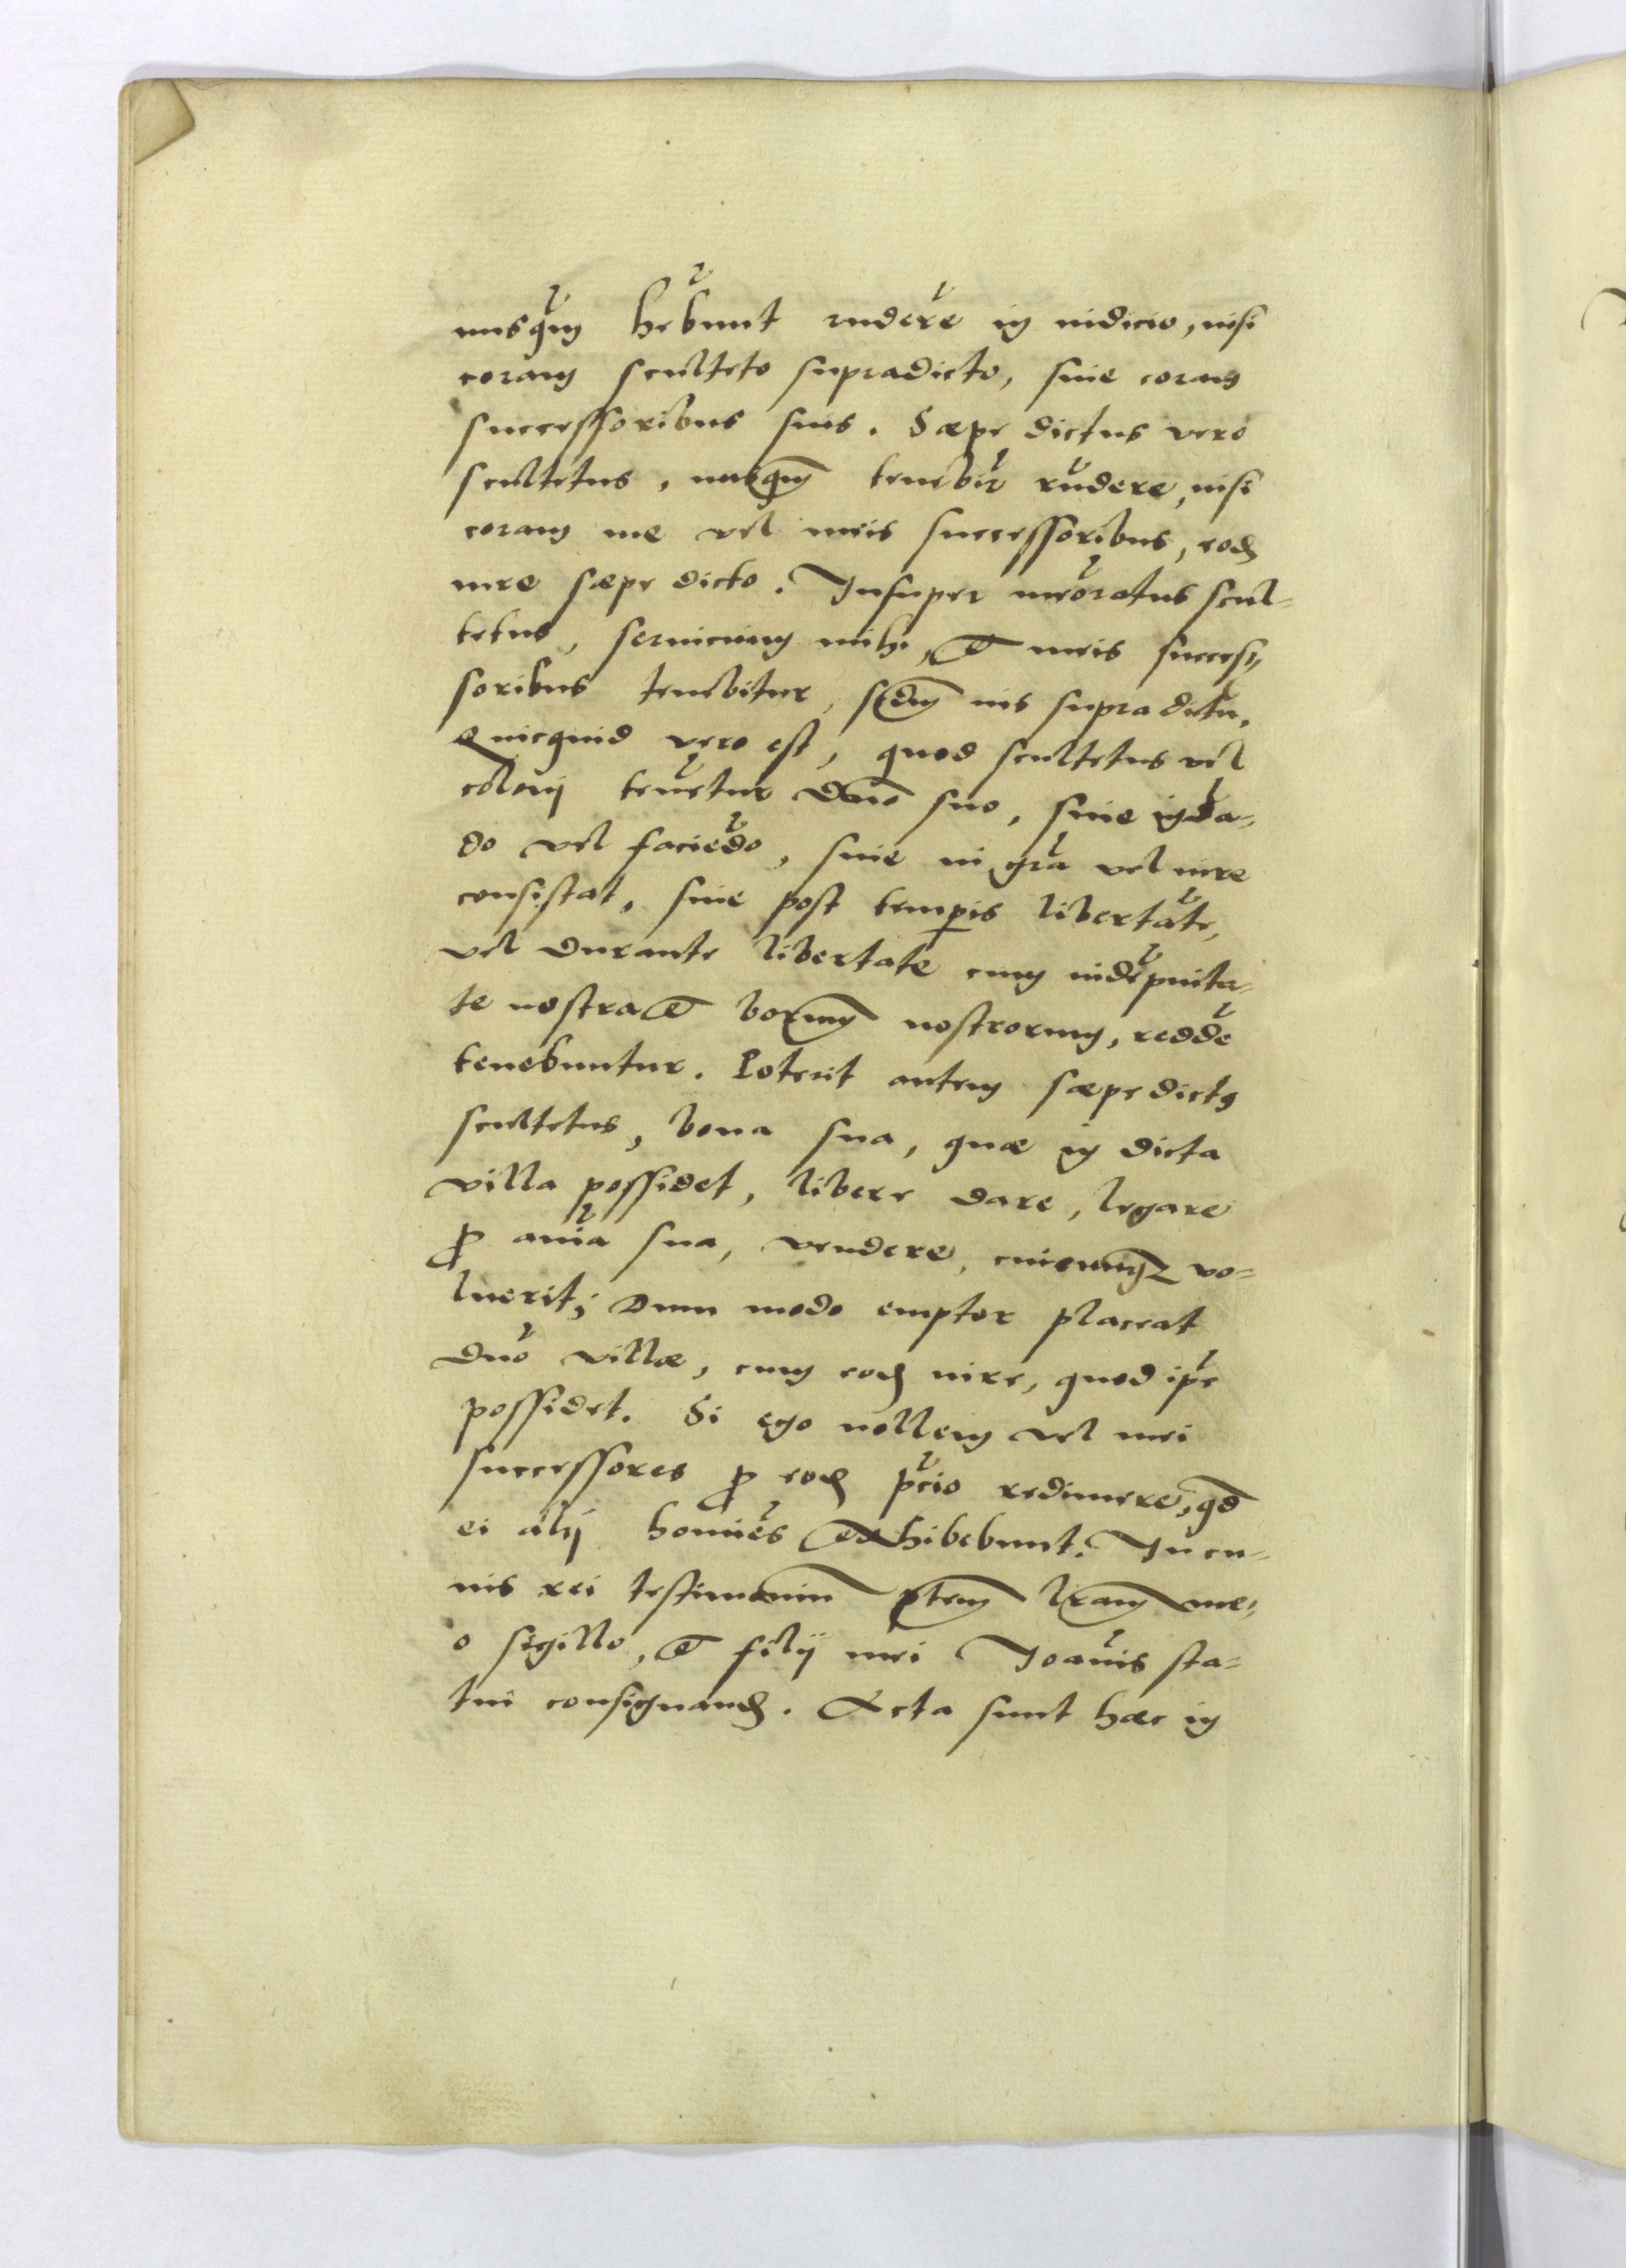 nusq̃m hẽbunt rũdere in iudicio, nisi
coram sculteto supradicto, siue coram
successoribus suis. Sæpe dictus vero
scultetus, nusq̃m tenebit̃ rñdere, nisi
coram me vel meis successoribus, eodẽ
iure sæpe dicto. Insuper mẽoratus scul-
tetus, seruicium mihi, et meis succes=
soribus tenebitur, scdm̃ ius supra dictũ,
Quicquid vero est, quod scultetus vel
coloni tenẽtur dño suo, siue in dã-
do vel faciẽdo, siue in gr̃a vel iure
consistat, siue post temp̱is libertatẽ,
vel durante libertate cum indẽpnita-
te nostra et bor̃um nostrorum, reddẽ
tenebuntur. Poterit autem sæpe dictꝰ
scultetus, bona sua, quæ in dicta
villa possidet, libere dare, legare
ꝓ aĩa sua, vendere, cuicunqꝫ vo-
luerit; Dum modo emptor placeat
dño villæ, cum eodẽ iure, quod ip̃e
possidet. Si ego nollem vel mei
successores ꝓ eodẽ p̃cio redimere, qd̃
ei alij homĩes exhibebunt. In cu-
ius rei testimoniũ p̃ntem lr̃am me-
o sigillo, et filij mei Joãnis sta-
tui consignandã. Acta sunt hæc in